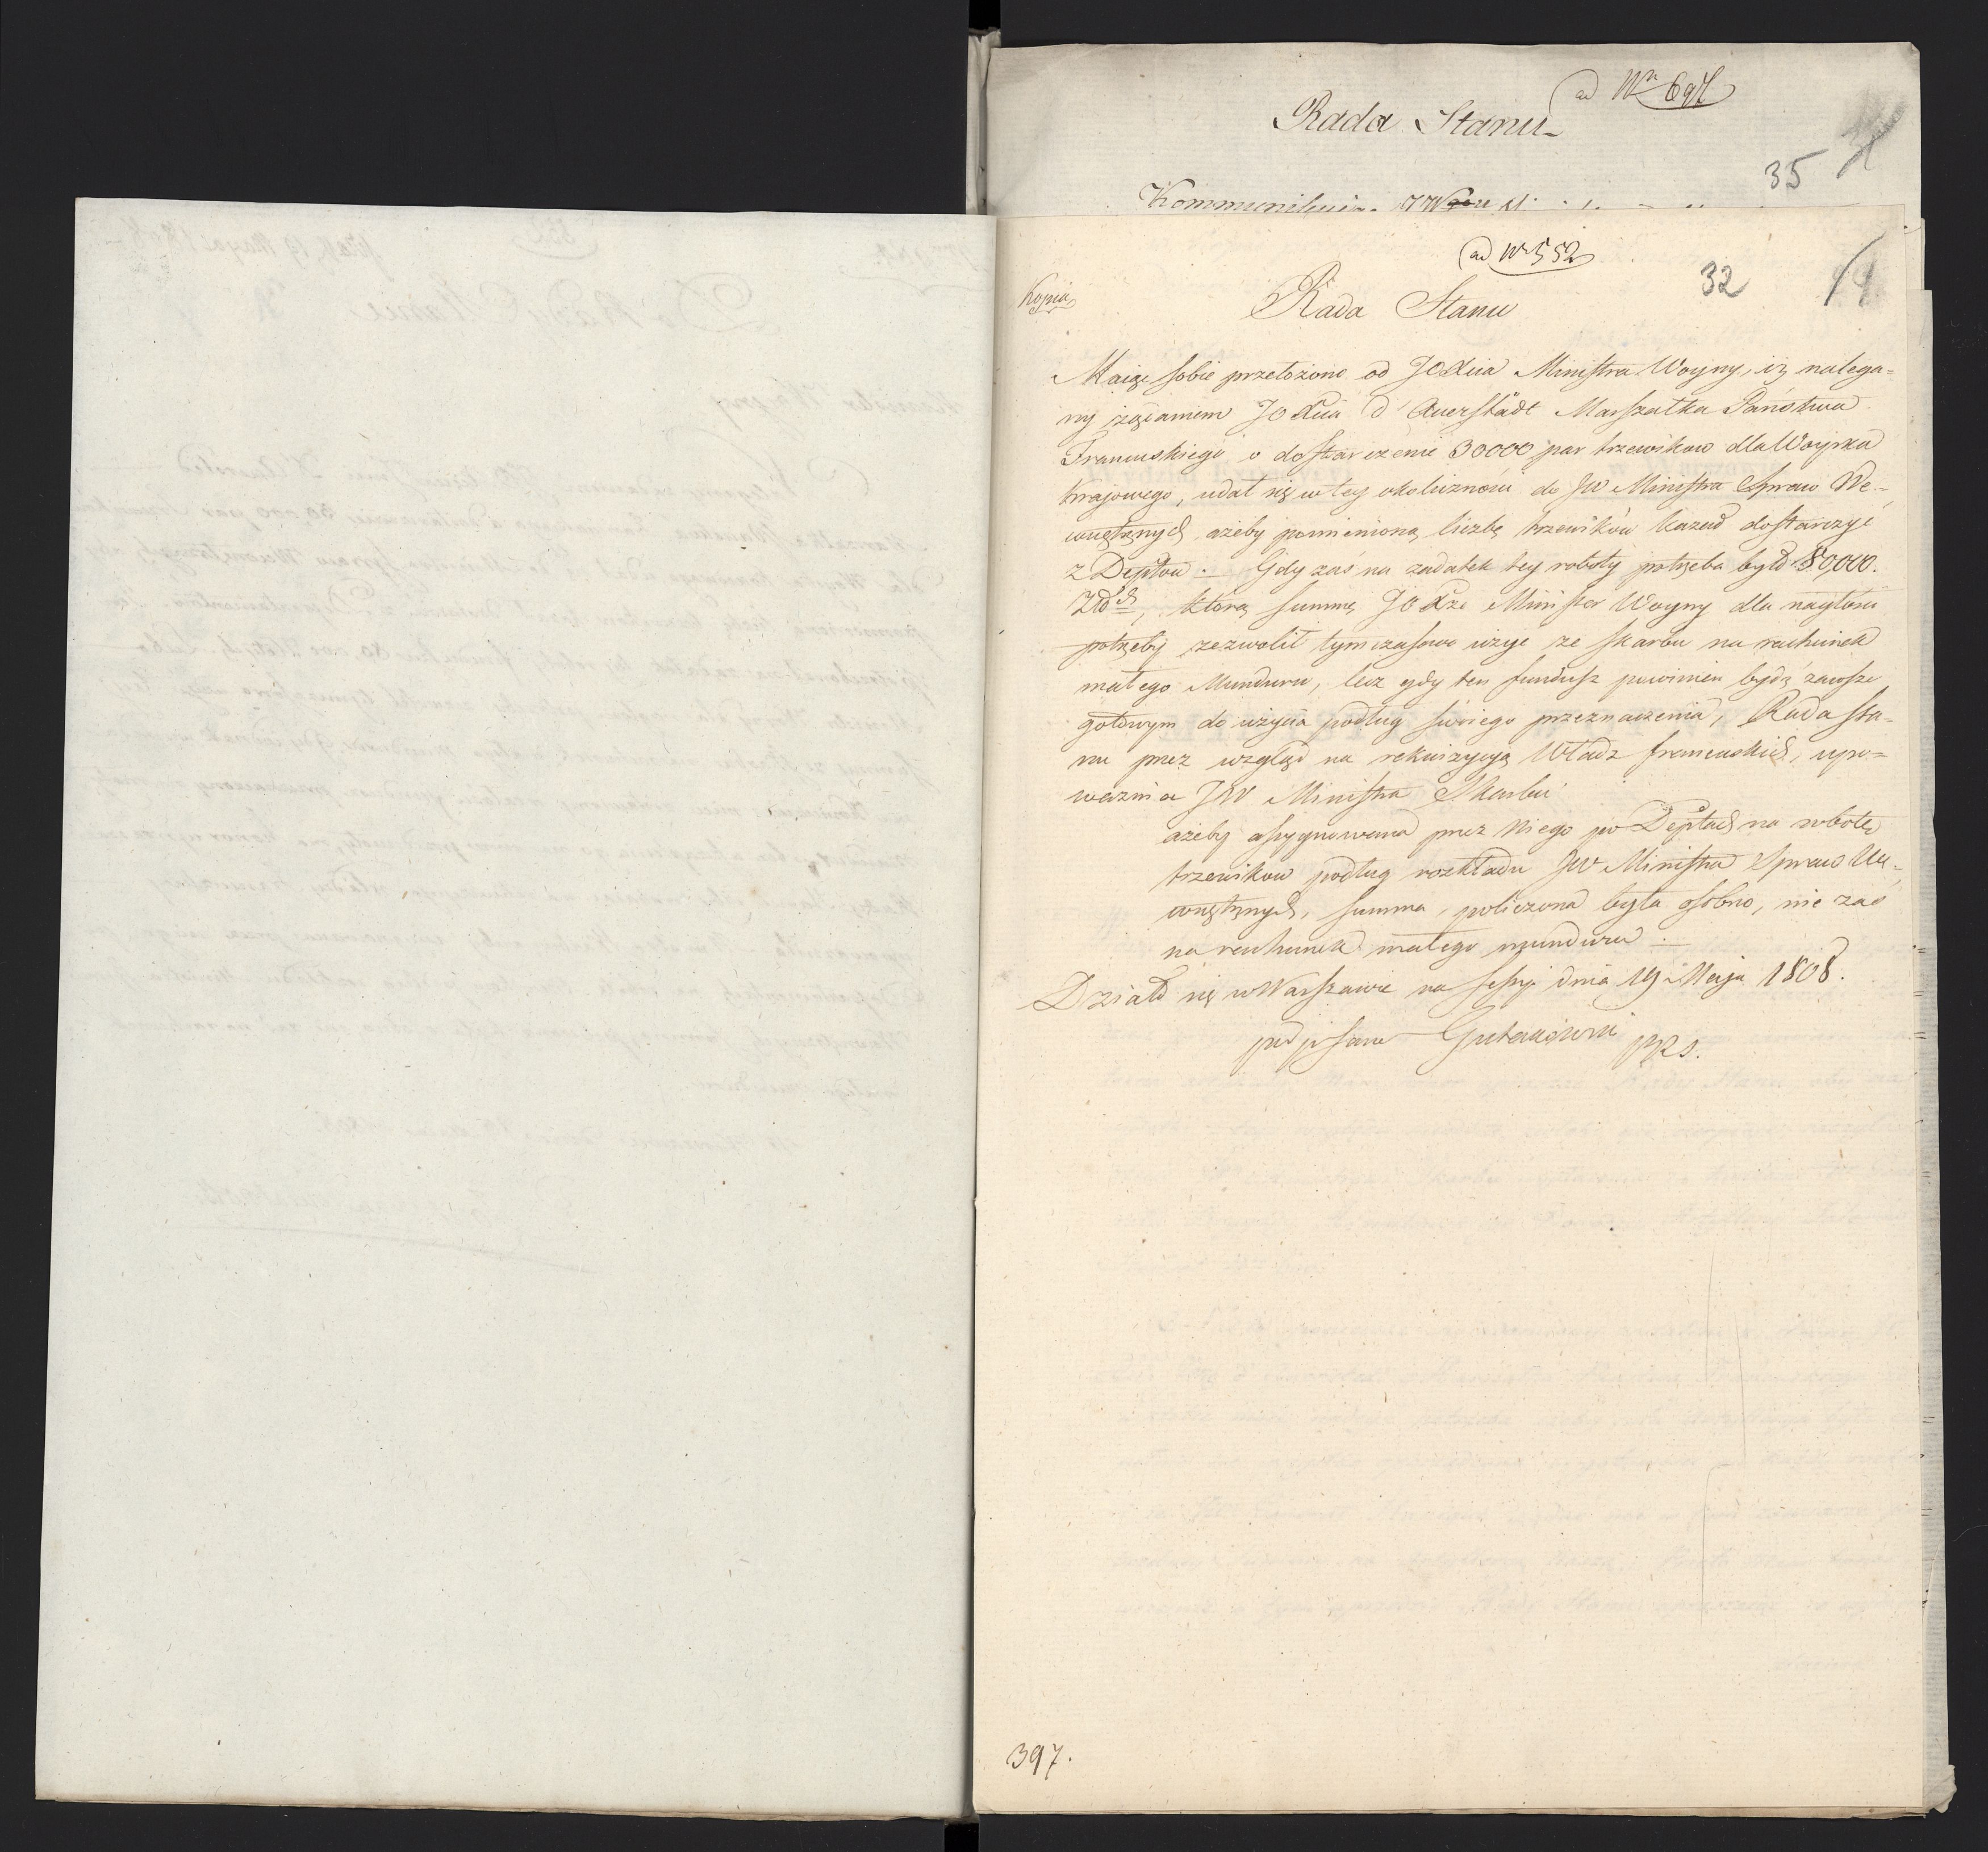 ad Nr 697
Rada Stanu
35
Kommunikuie
ad Nr 552
32
Kopia
Rada Stanu
Maiąc sobie przełożone od JOXcia Ministra Woyny, iż nalega-
ny żądaniem JOXcia d'Auerstädt Marszałka Państwa
Francuskiego o dostarczenie 30000 par trzewikow dla Woyska
krajowego, udał się w tey okoliczności do JW Ministra Spraw We-
wnętrznych, ażeby pomienioną liczbę trzewików kazał dostarczyć
z Depttów. Gdy zaś na zadatek tey roboty potrzeba było 80,000.
Złch, którą summę JOXże Minister Woyny dla nagłości
potrzeby zezwolił tymczasowo użyć ze skarbu na rachunek
małego Munduru, lecz gdy ten fundusz powinien bydź zawsze
gotowym do użycia podług swoiego przeznaczenia, Rada Sta-
nu przez wzgląd na rekwizycyą Władz francuskich, upo-
ważnia JW Ministra Skarbu
ażeby assygnowana przez Niego po Depttach na robotę
trzewikow podług rozkładu JW Ministra Spraw We-
wnętrznych, summa, policzona była osobno, nie zaś
na rachunek małego munduru.
Działo się w Warszawie na sessyi dnia 19 Maja 1808.
podpisano Gutakowski PRS.
397.